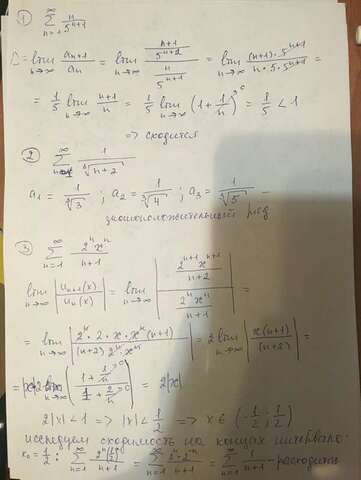 ① ∑_{n=1}^{∞} n/5^{n+1}
D = lim_{n→∞} a_{n+1}/a_n = lim_{n→∞} ((n+1)/5^{n+2})/(n/5^{n+1}) = lim_{n→∞} (n+1)·5^{n+1}/(n·5·5^{n+1}) =
= 1/5 lim_{n→∞} (n+1)/n = 1/5 lim_{n→∞} (1 + 1/n)^{→0} = 1/5 < 1
=> сходится
② ∑_{n=1}^{∞} 1/√(n+2)
a₁ = 1/√3 ; a₂ = 1/√4 ; a₃ = 1/√5 –
знакоположительный ряд
③ ∑_{n=1}^{∞} 2ⁿxⁿ/(n+1)
lim_{n→∞} |u_{n+1}(x)/u_n(x)| = lim_{n→∞} |(2^{n+1}x^{n+1}/(n+2))/(2ⁿxⁿ/(n+1))| =
= lim_{n→∞} |2ⁿ·2·x·xⁿ(n+1)/((n+2)2ⁿxⁿ)| = 2 lim_{n→∞} |x(n+1)/(n+2)| =
= |x|2 lim_{n→∞} ((1 + 1/n^{→0})/(1 + 2/n^{→0})) = 2|x|
2|x| < 1 => |x| < 1/2 => x ∈ (-1/2; 1/2)
исследуем сходимость на концах интервала:
x₀ = 1/2 : ∑_{n=1}^{∞} 2ⁿ(1/2)ⁿ/(n+1) = ∑_{n=1}^{∞} 2ⁿ·2⁻ⁿ/(n+1) = ∑_{n=1}^{∞} 1/(n+1) - расходится